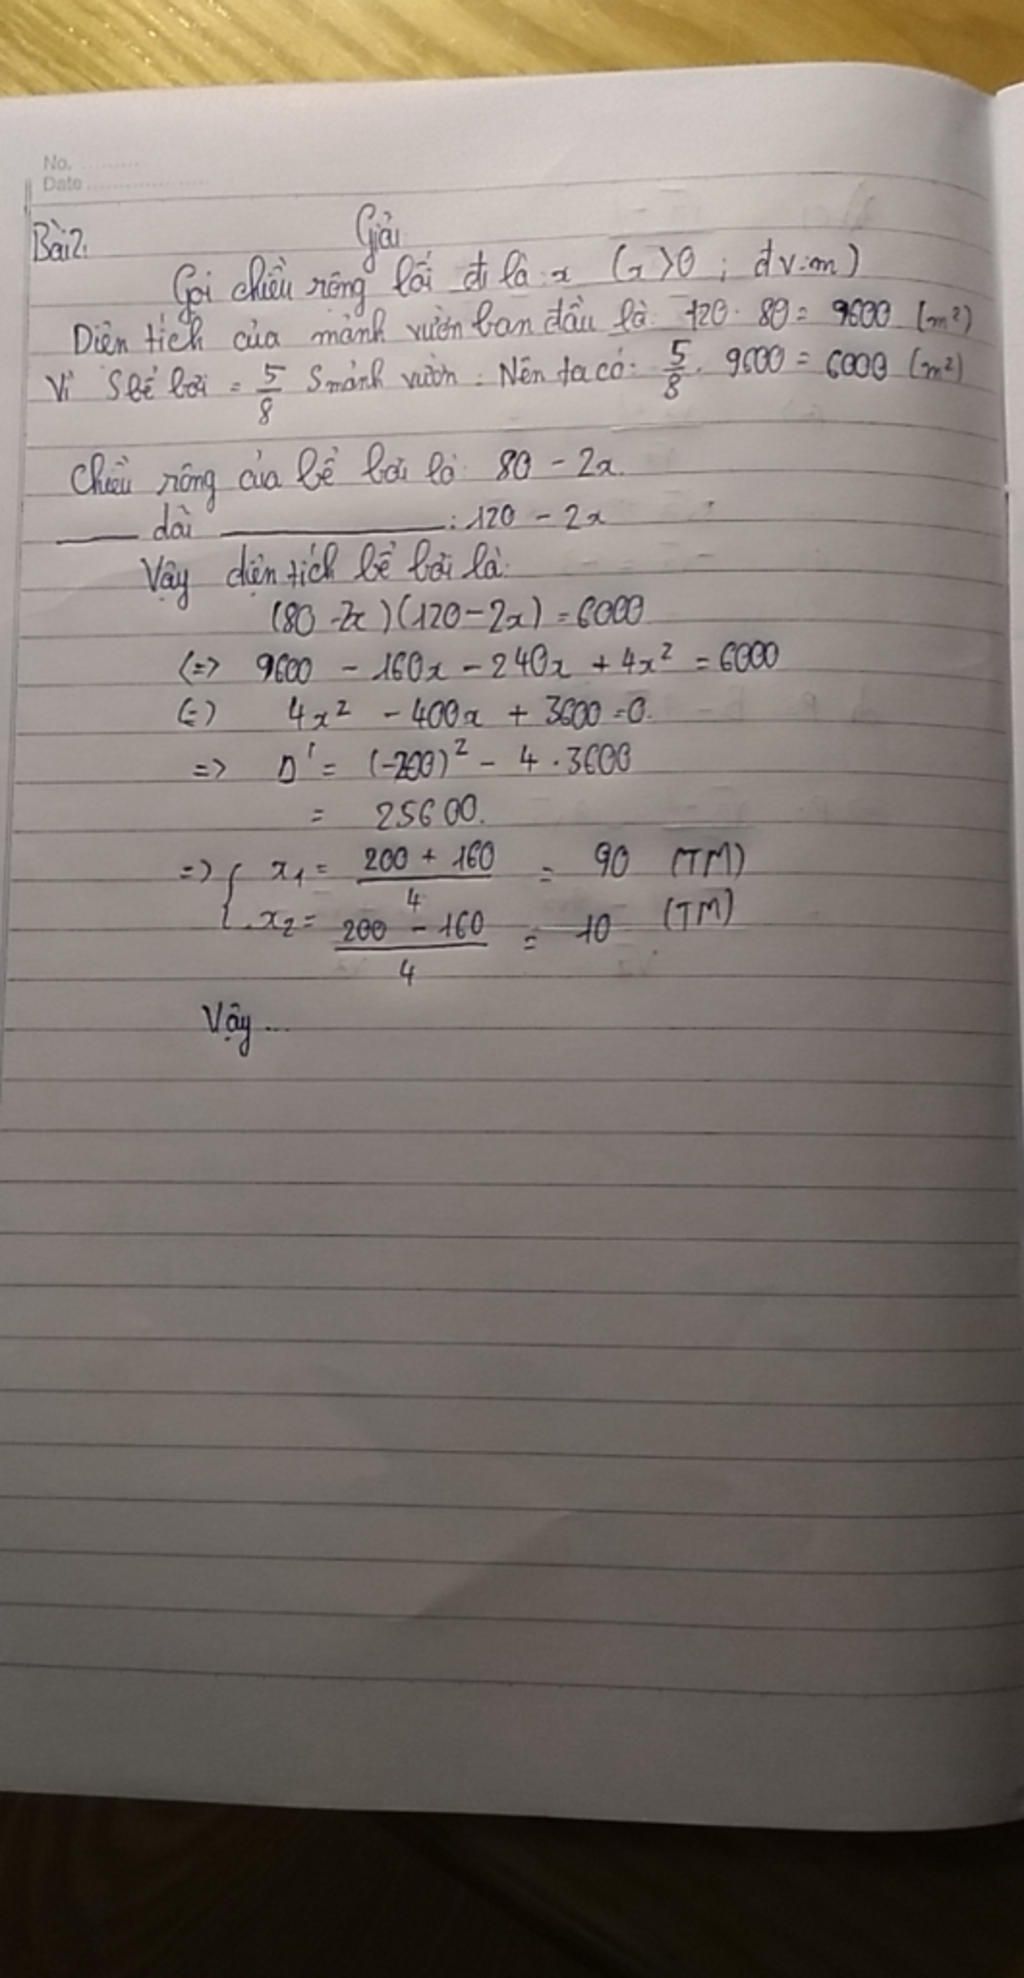 No. ..........
Date ....................
Bài 2. Giải
Gọi chiều rộng lối đi là x (x > 0 ; đv: m)
Diện tích của mảnh vườn ban đầu là: 120 . 80 = 9600 (m²)
Vì S bể bơi = 5/8 S mảnh vườn. Nên ta có: 5/8 . 9600 = 6000 (m²)
Chiều rộng của bể bơi là: 80 - 2x.
____ dài __________ : 120 - 2x
Vậy diện tích bể bơi là:
(80 - 2x)(120 - 2x) = 6000
<=> 9600 - 160x - 240x + 4x² = 6000
(=) 4x² - 400x + 3600 = 0.
=> Δ' = (-200)² - 4 . 3600
= 25600.
=> { x₁ = (200 + 160)/4 = 90 (TM)
x₂ = (200 - 160)/4 = 10 (TM)
Vậy ...